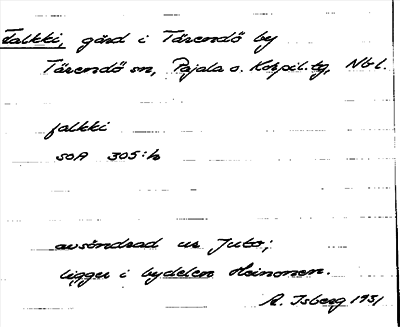 Falkki, gård i Tärendö by
Tärendö sn, Pajala o. Korpil. tg, Nbl.
falkki
SOA 305:h
avsöndrad ur Juto;
ligger i bydelen Heinonen.
A. Isberg 1931